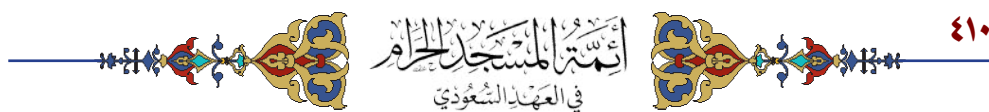 ٤١٠
أَئِمَّةُ المَسْجِدِ الحَرَامِ
في العَهْدِ السُّعُودِيّ